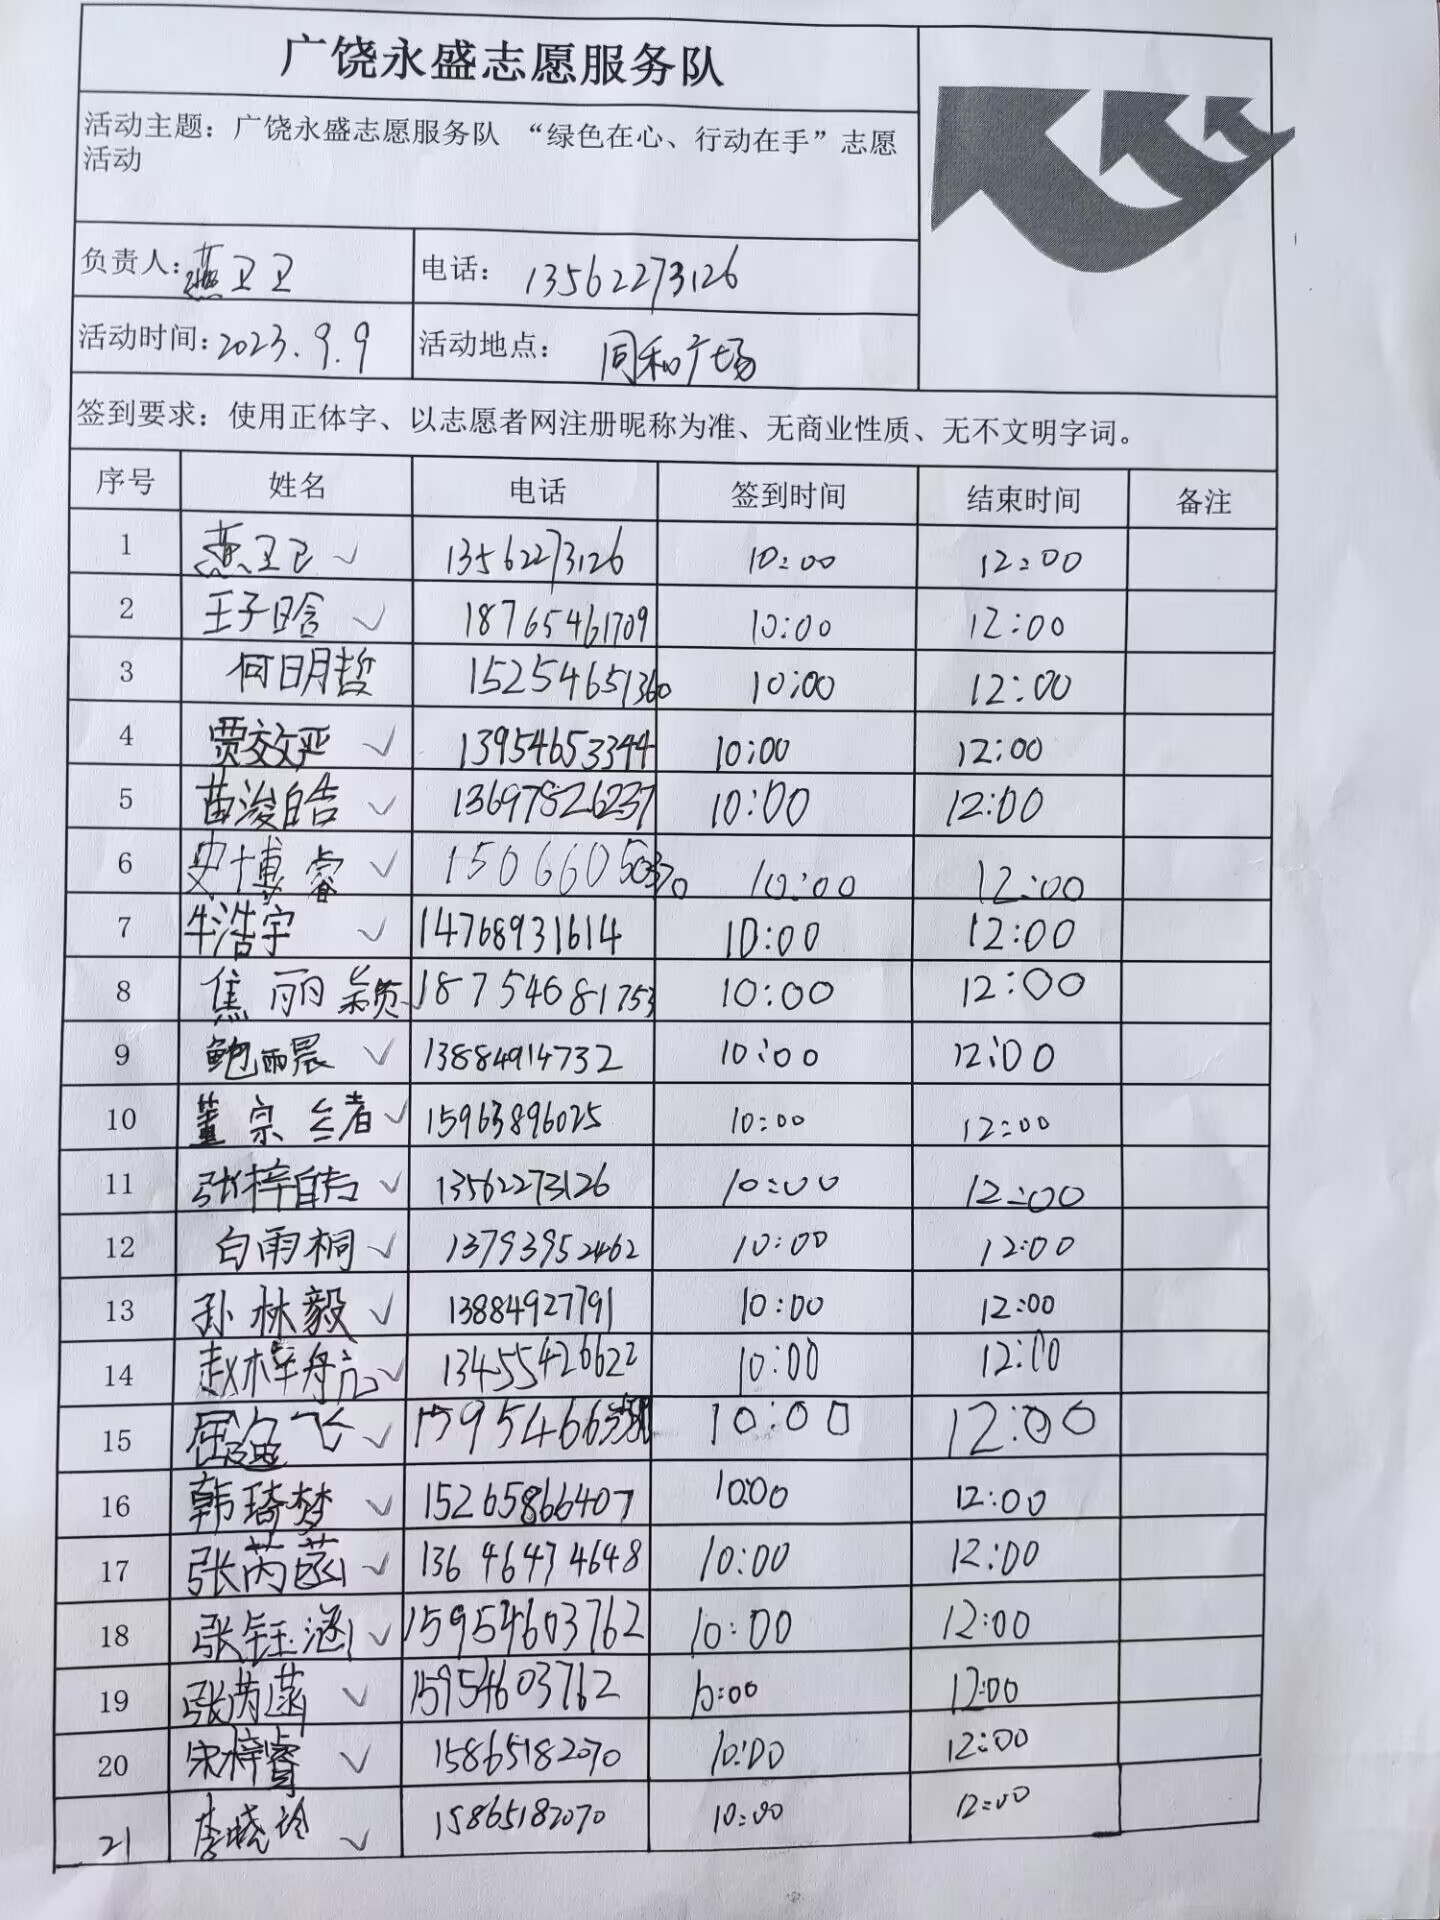 广饶永盛志愿服务队
活动主题：广饶永盛志愿服务队 “绿色在心、行动在手”志愿
活动
负责人：燕卫卫 电话：13562273126
活动时间：2023.9.9 活动地点：同和广场
签到要求：使用正体字、以志愿者网注册昵称为准、无商业性质、无不文明字词。
序号 姓名 电话 签到时间 结束时间 备注
1 燕卫卫 ✓ 13562273126 10:00 12:00
2 王子晗 ✓ 18765461709 10:00 12:00
3 何明哲 15254651360 10:00 12:00
4 贾效严 ✓ 13954653344 10:00 12:00
5 苗浚皓 ✓ 13697826237 10:00 12:00
6 史博睿 ✓ 15066050370 10:00 12:00
7 牛浩宇 ✓ 14768931614 10:00 12:00
8 焦丽颖 18754681753 10:00 12:00
9 鲍雨晨 ✓ 13884914732 10:00 12:00
10 董宗 ✓ 15963896025 10:00 12:00
11 张梓皓 ✓ 13562273126 10:00 12:00
12 白雨桐 ✓ 13793952462 10:00 12:00
13 孙林毅 ✓ 13884927791 10:00 12:00
14 赵梓航 ✓ 13455426622 10:00 12:00
15 ✓ 10:00 12:00
16 韩琦梦 ✓ 15265866407 10:00 12:00
17 张芮菡 ✓ 13646474648 10:00 12:00
18 张钰涵 ✓ 15954603762 10:00 12:00
19 ✓ 15954603762 10:00 12:00
20 宋梓睿 ✓ 15865182070 10:00 12:00
21 李晓玲 ✓ 15865182070 10:00 12:00